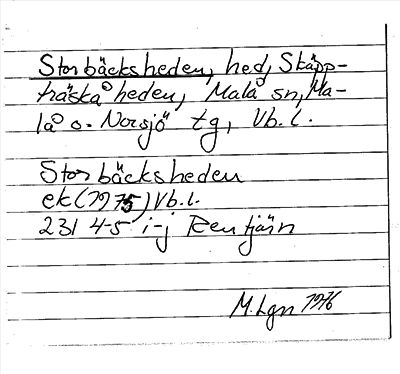 Storbäcksheden, hed, Skäpp-
träskåheden, Malå sn, Ma-
lå o. Norsjö tg, Vb.l.
Storbäcksheden
ek (1975) Vb.l.
231 4-5 i-j Rentjärn
M. Lgn 1976